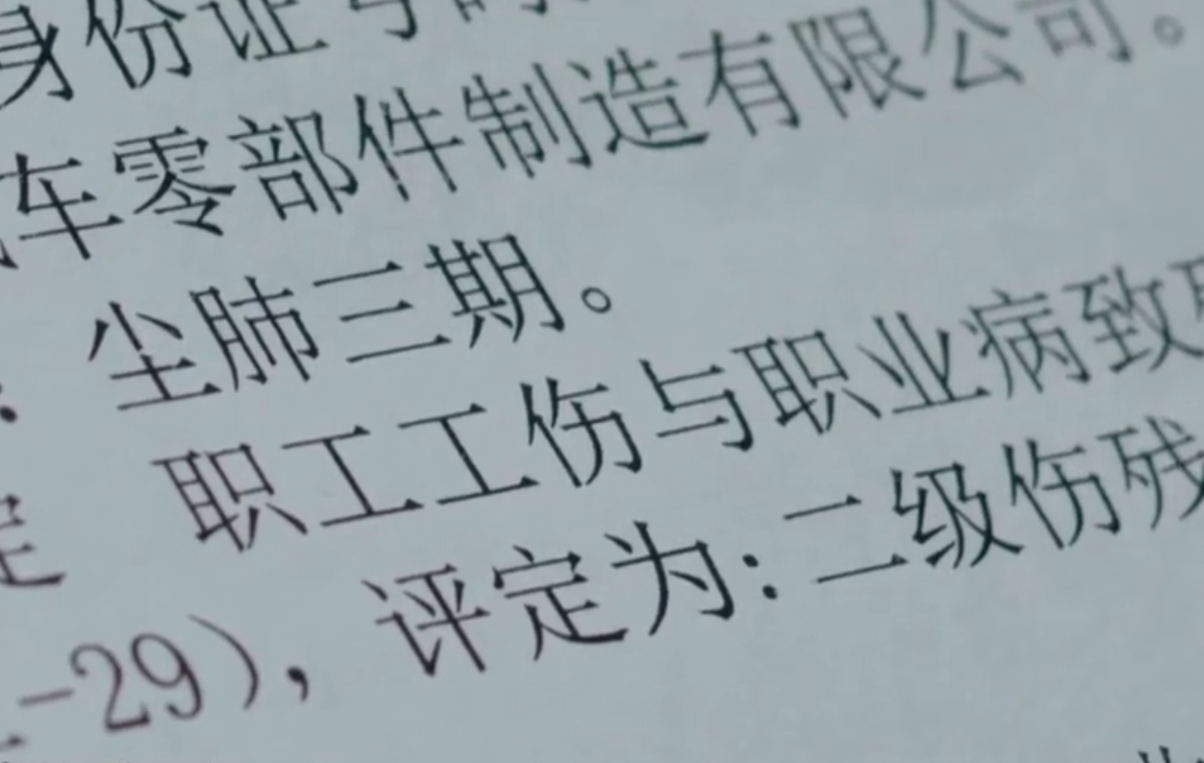 身份证号
车零部件制造有限公司。
尘肺三期。
职工工伤与职业病致
-29)，评定为:二级伤残